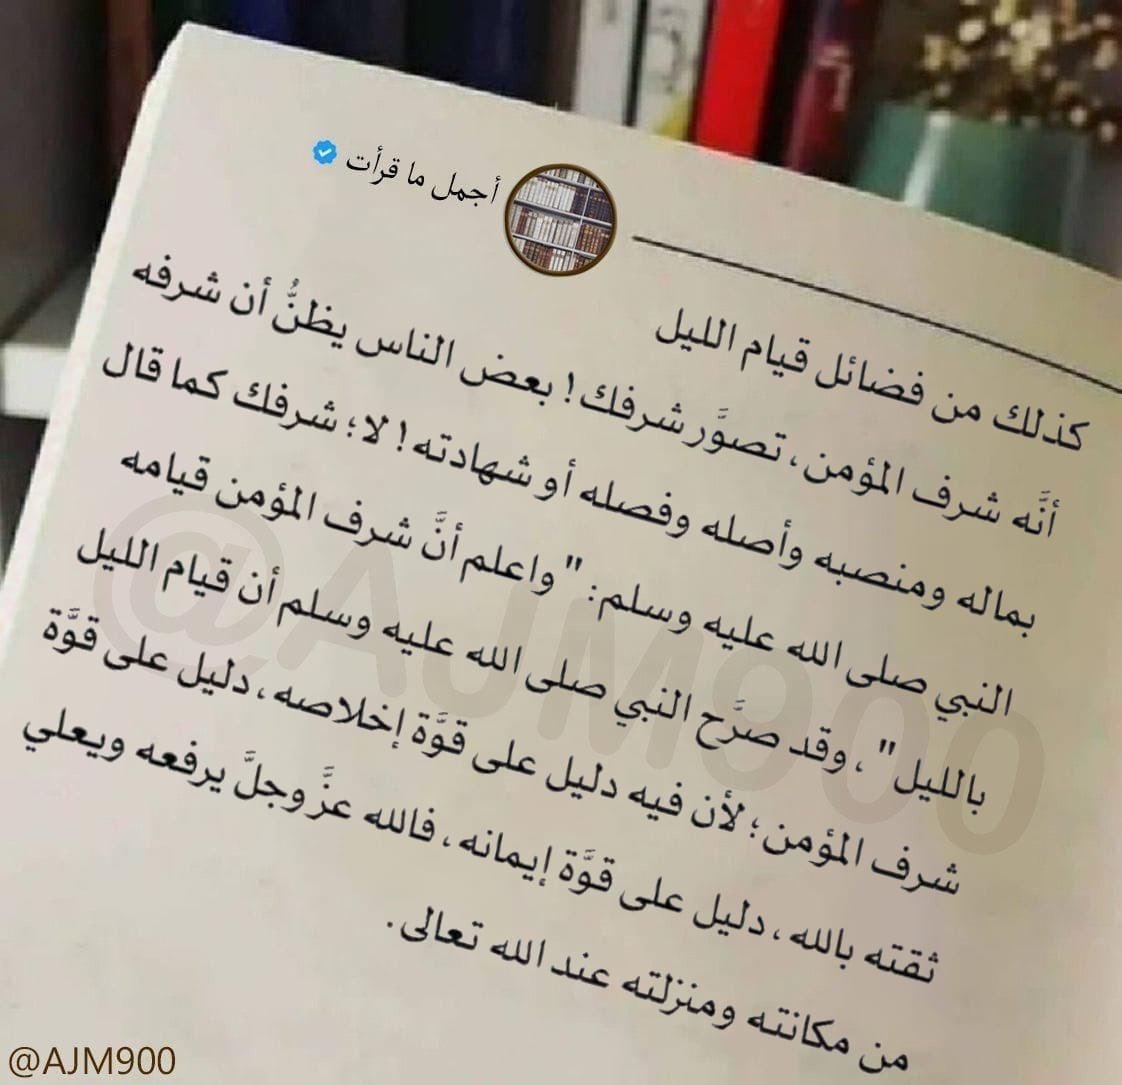 أجمل ما قرأت
كذلك من فضائل قيام الليل
أنَّه شرف المؤمن، تصوَّر شرفك! بعض الناس يظنُّ أن شرفه
بماله ومنصبه وأصله وفصله أو شهادته! لا؛ شرفك كما قال
النبي صلى الله عليه وسلم: "واعلم أنَّ شرف المؤمن قيامه
بالليل"، وقد صرَّح النبي صلى الله عليه وسلم أن قيام الليل
شرف المؤمن؛ لأن فيه دليل على قوَّة إخلاصه، دليل على قوَّة
ثقته بالله، دليل على قوَّة إيمانه، فالله عزَّ وجلَّ يرفعه ويعلي
من مكانته ومنزلته عند الله تعالى.
@AJM900
@AJM900